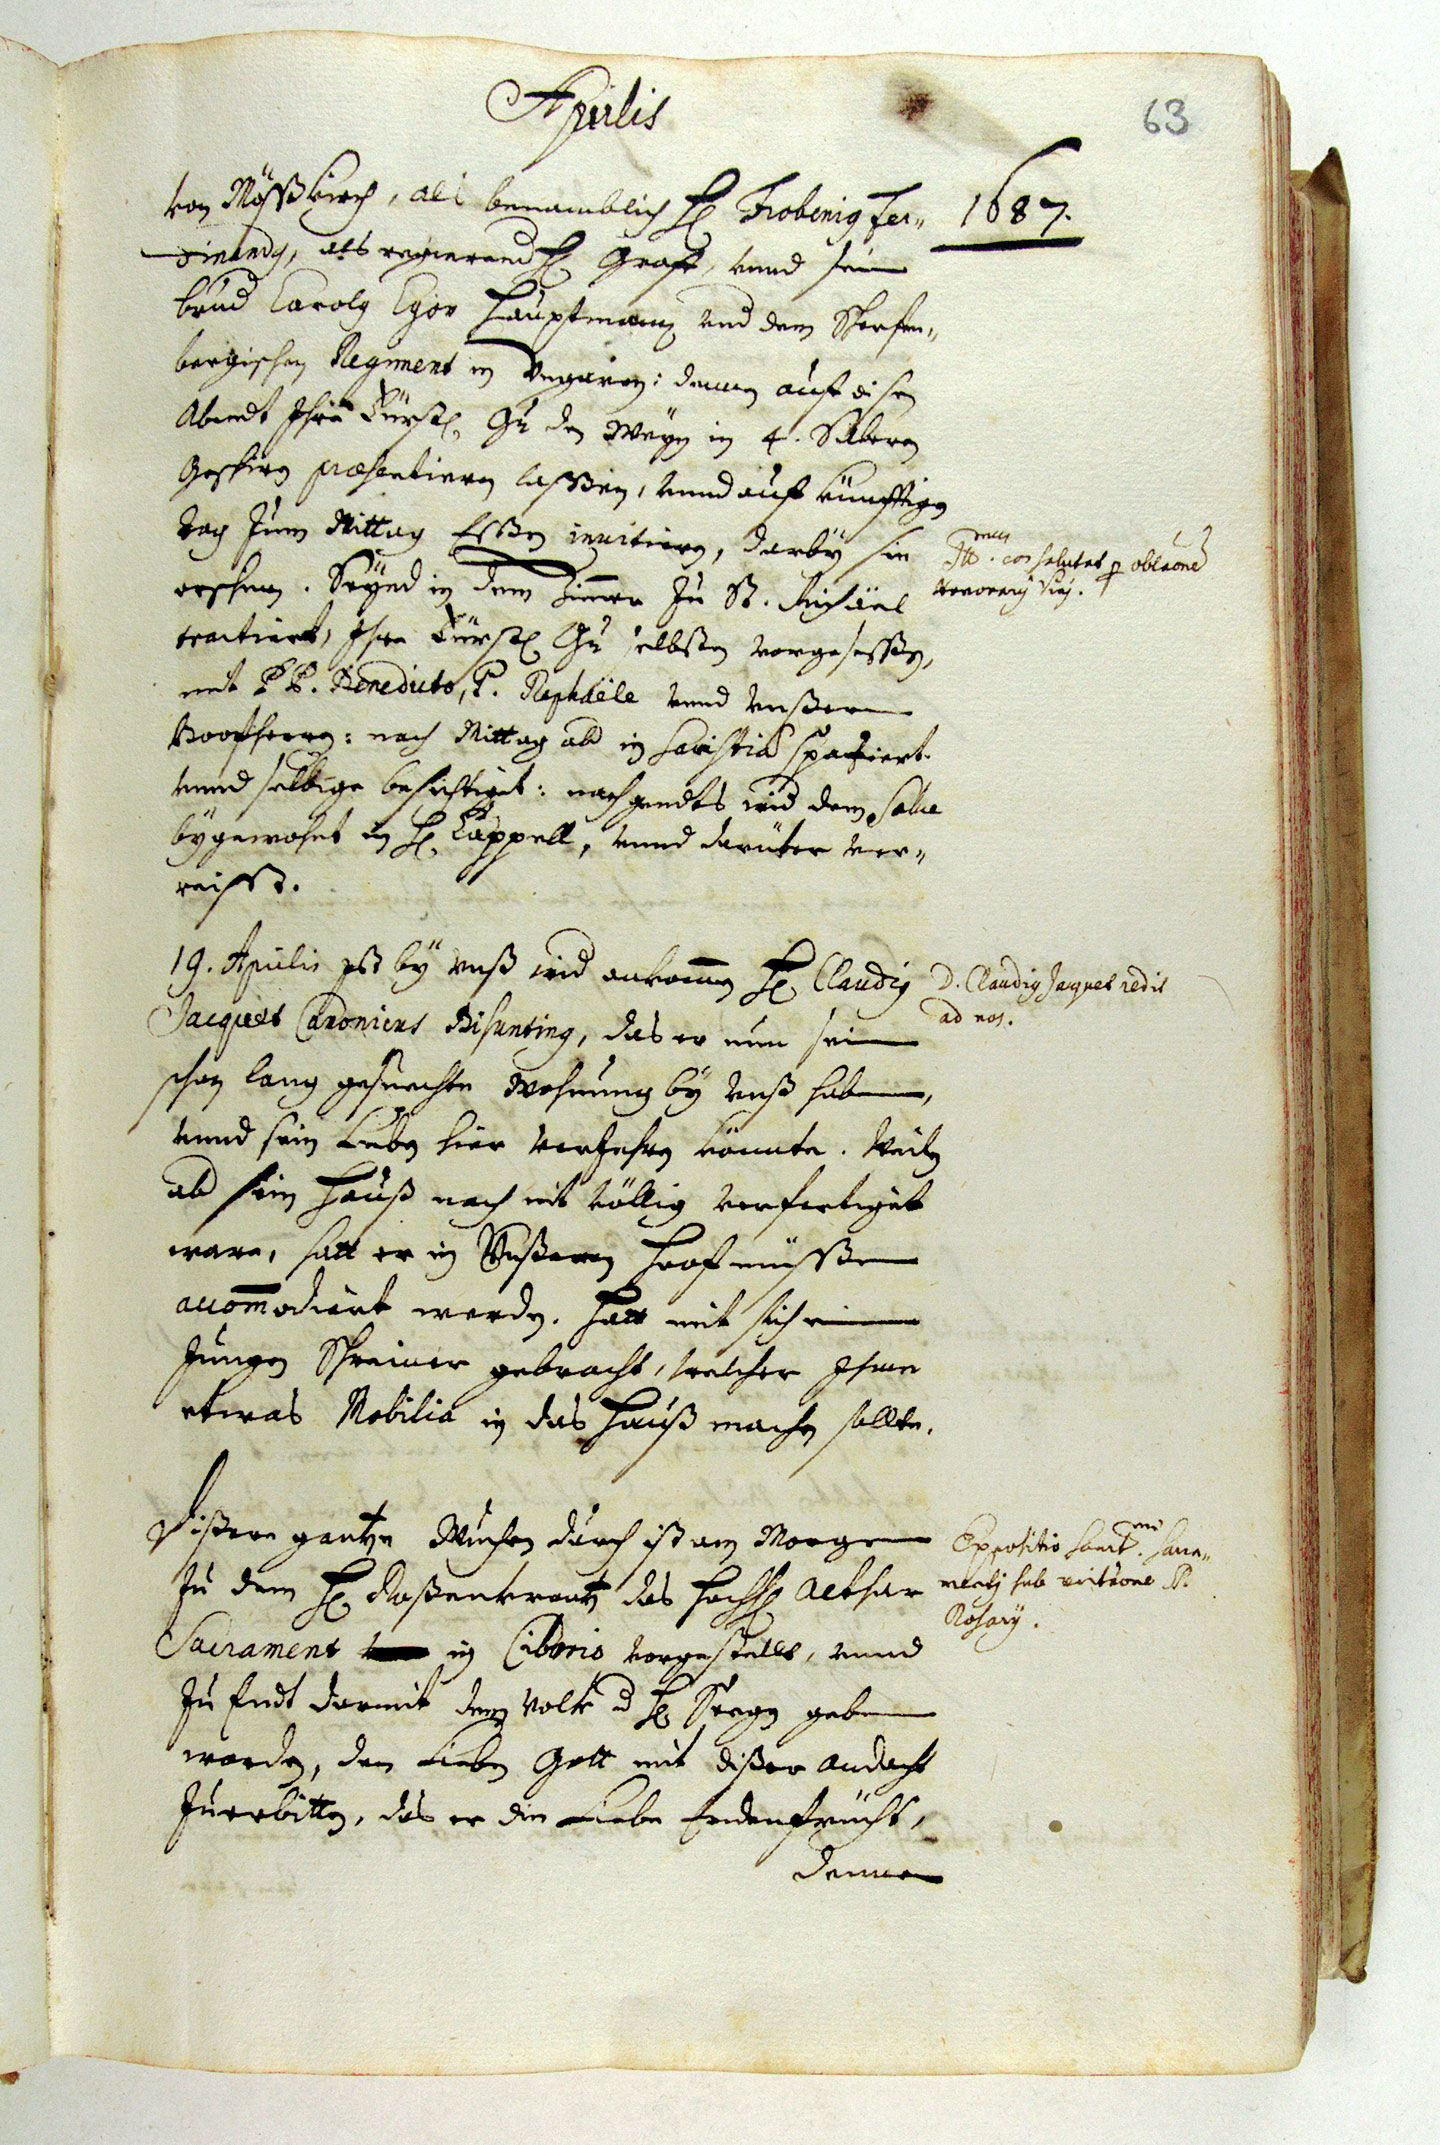 Aprilis
63
1687.
von Mößkirch, als benamblich H. Frobenig Fer-
dinandg, als regierend H. Graff, vnnd sein
bruod Carolg Egon Hauptmann vnd dem
bergischen Regiment in Vngaren: denen auff disen
Abendt Ihro Fürstl. Gn. den Weyn in 4. Silberen
Geschirn præsentieren lassen, vnnd auff künfftigen
tag zum Mittag Essen inuitieren, darby sie
erschinen. Seynd in dem Zimmer zu St. Michäel
tractiert, Ihro Fürstl. Gn. selbsten vorgesessen,
mit PP. Benedicto, P. Raphaële vnnd vnßeren
Hoofherren: nach Mittag ald in Sacristia spaziert
vnnd selbige besichtiget: nachgendts wid dem Salue
bygewohnt in H. Cappell, vnnd darüber ver-
reisst.
Ill.mus eos salutat p oblaone
honorarij vini.
19. Aprilis ist by vnß wid ankommen H. Claudig
Jacquet Canonicus Bisunting, das er nun sein
schon lang gesuechte Wohnung by vnß haben,
vnnd sein Leben hier verzehren könnte. Weilen
ab sein Hauß noch nit völlig verfertiget
ware, hatt er in Vnßeren Hoof müssen
accommodiert werden. Hatt mit sich einen
Jungen Schreiner gebracht, welcher Ihme
etwas Mobilia in das Hauß machen sollte.
D. Claudig Jacquet redit
ad nos.
Dißere gantze Wuchen durch ist am Morgen
zu dem H. Roßenkrantz das hochh. Althar
Sacrament in Ciborio vorgestellt, vnnd
zu Endt darmit dem Volk d H. Seegen geben
worden, den Lieben Gott mit dißer andacht
zuerbitten, das er die Liebe Erdenfrücht,
dennen
Expositio Sanct.mi Sacra-
menti sub recitaone S.
Rosarij.